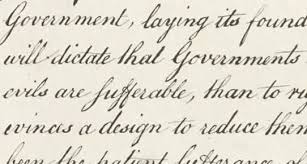 Government, laying its found
will dictate that Governments
evils are ſufferable, than to
evinces a design to reduce them
been the patient ſufferance